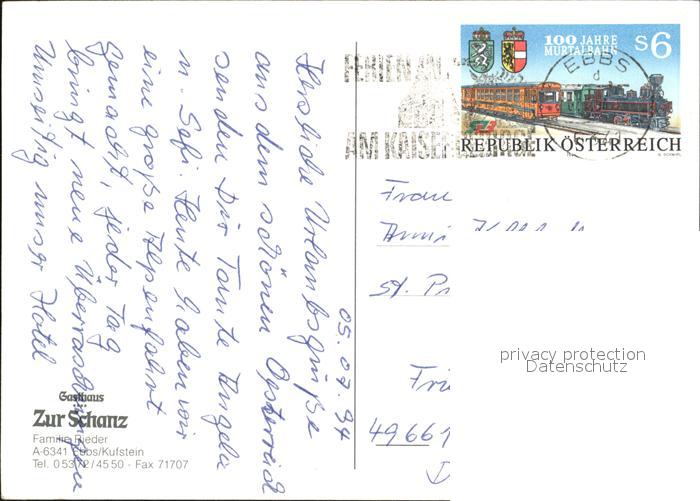 05.07.94
Herzliche Urlaubsgrüße
aus dem schönen Östereich
senden Dir Tante Angela
u. Sefi. Heute haben wir
eine große Alpenfahrt
gemacht, jeder Tag
bringt neue Überraschungen
Umseitig unser Hotel
Gasthaus
Zur Schanz
Familie Rieder
A-6341 Ebbs/Kufstein
Tel. 05372/4550 - Fax 71707
100 JAHRE
MURTALBAHN
S6
REPUBLIK ÖSTERREICH
EBBS
d
FERIEN AU
AM KAISERGEBIRGE
Frau
St. Pr
Fri
49661
D
privacy protection
Datenschutz